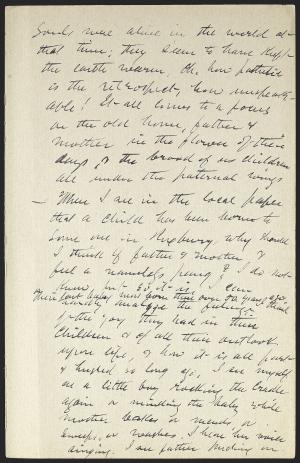 Souls were alive in the world at
that time; they seem to have kept
the earth warm. Oh, how pathetic
is the retrospect, how unspeak-
able! It all comes to a focus
on the old home, father &
mother in the flower of their
days, & the brood of us children
all under the paternal wings
— When I see in the local paper
that a child has been born to
some one in Roxbury, why should
I think of father & mother, &
feel a nameless pang? I do not
know, but so it is. I can
Their last baby was born over 50 years ago.
vividly imagine the
the joy they had in their
children & of all their outlook
upon life, & how it is all past
& hushed so long ago, I see myself
as a little boy rocking the cradle
again or minding the baby while
mother bakes or mends or
sweeps, or washes. I hear her voice
singing. I see father pushing on